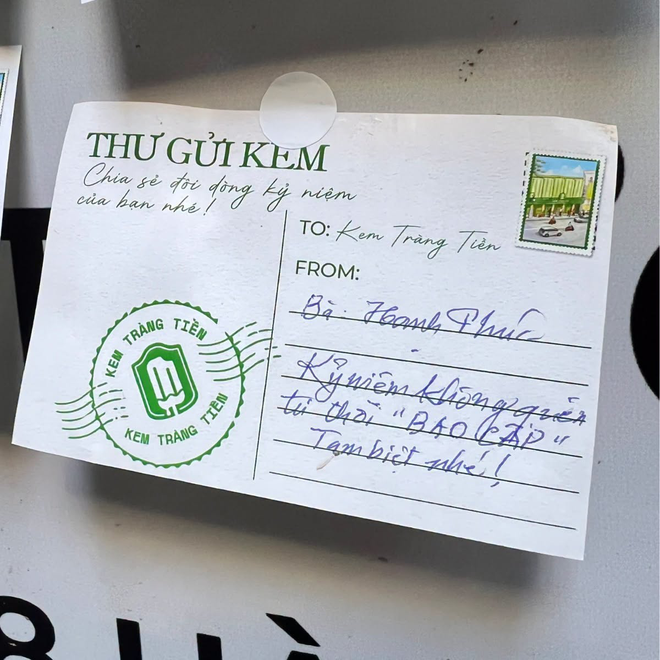 THƯ GỬI KEM
Chia sẻ đôi dòng kỷ niệm
của bạn nhé!
TO: Kem Tràng Tiền
FROM:
Bà. Hạnh Phúc
Kỷ niệm không quên
từ thời "BAO CẤP"
Tạm biệt nhé!
KEM TRÀNG TIỀN
KEM TRÀNG TIỀN
8 HÀ